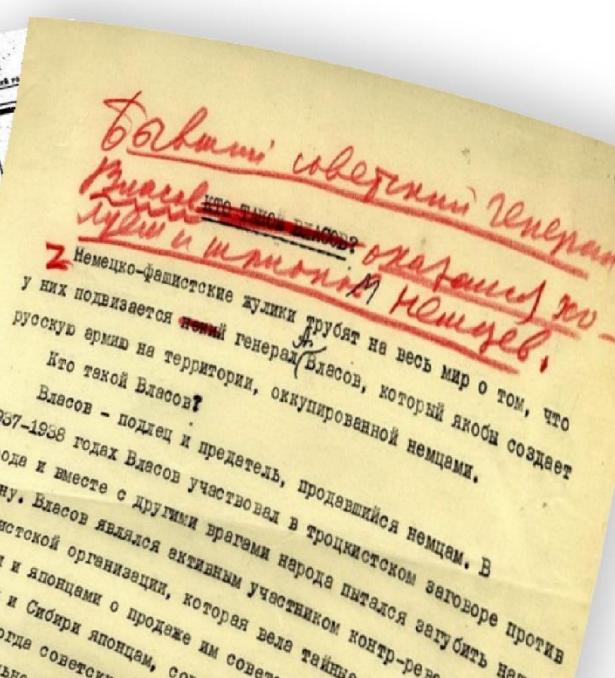 Бывший советский генерал
Власов КТО ТАКОЙ ВЛАСОВ? оказался хо-
луем и шпионом немцев.
Z Немецко-фашистские жулики трубят на весь мир о том, что
у них подвизается некий генерал А. Власов, который якобы создает
русскую армию на территории, оккупированной немцами.
Кто такой Власов?
Власов – подлец и предатель, продавшийся немцам. В
937-1938 годах Власов участвовал в троцкистском заговоре против
ода и вместе с другими врагами народа пытался загубить
ну. Власов являлся активным участником контр-рев
истской организации, которая вела тайные
и и японцами о продаже им совет
и Сибири японцам,
огда советски